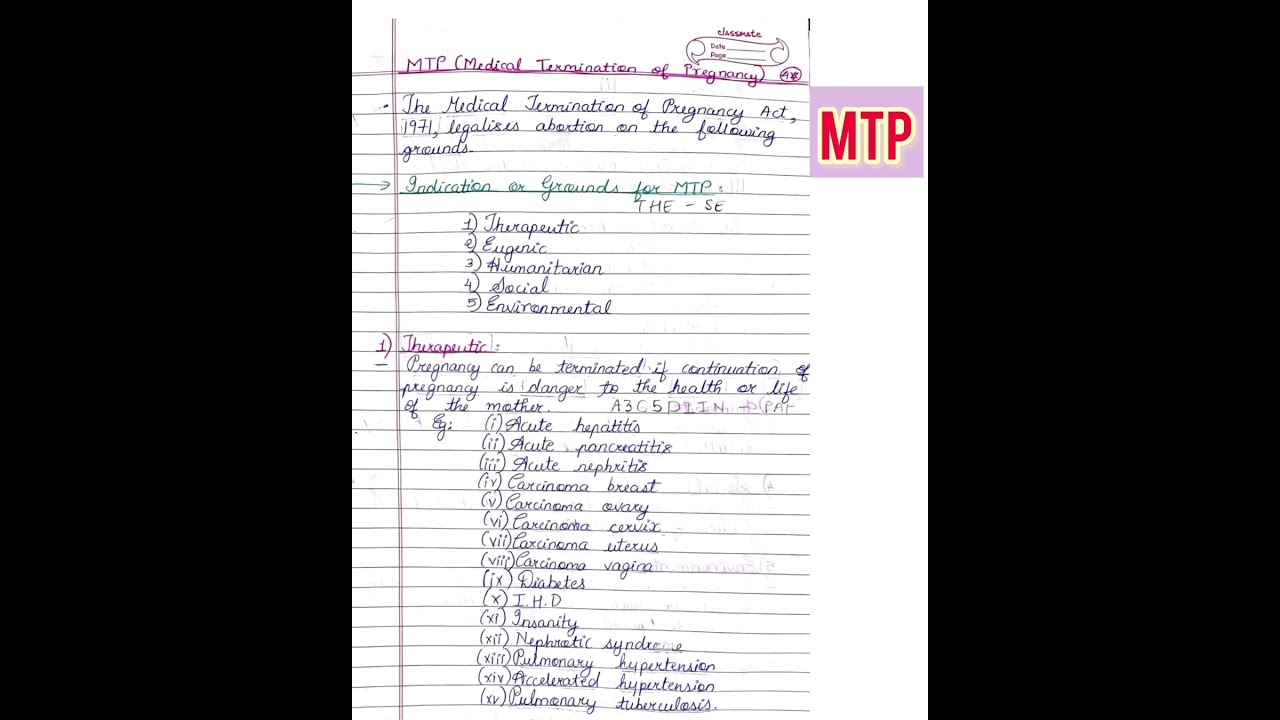 classmate
Date
Page
MTP (Medical Termination of Pregnancy)
MTP
• The Medical Termination of Pregnancy Act,
1971, legalises abortion on the following
grounds.
→ Indication or Grounds for MTP:
THE - SE
1) Therapeutic
2) Eugenic
3) Humanitarian
4) Social
5) Environmental
1) Therapeutic:
– Pregnancy can be terminated if continuation of
pregnancy is danger to the health or life
of the mother. A3C5DIIN - PAP
Eg: (i) Acute hepatitis
(ii) Acute pancreatitis
(iii) Acute nephritis
(iv) Carcinoma breast
(v) Carcinoma ovary
(vi) Carcinoma cervix
(vii) Carcinoma uterus
(viii) Carcinoma vagina
(ix) Diabetes
(x) I.H.D
(xi) Insanity
(xii) Nephrotic syndrome
(xiii) Pulmonary hypertension
(xiv) Accelerated hypertension
(xv) Pulmonary tuberculosis.